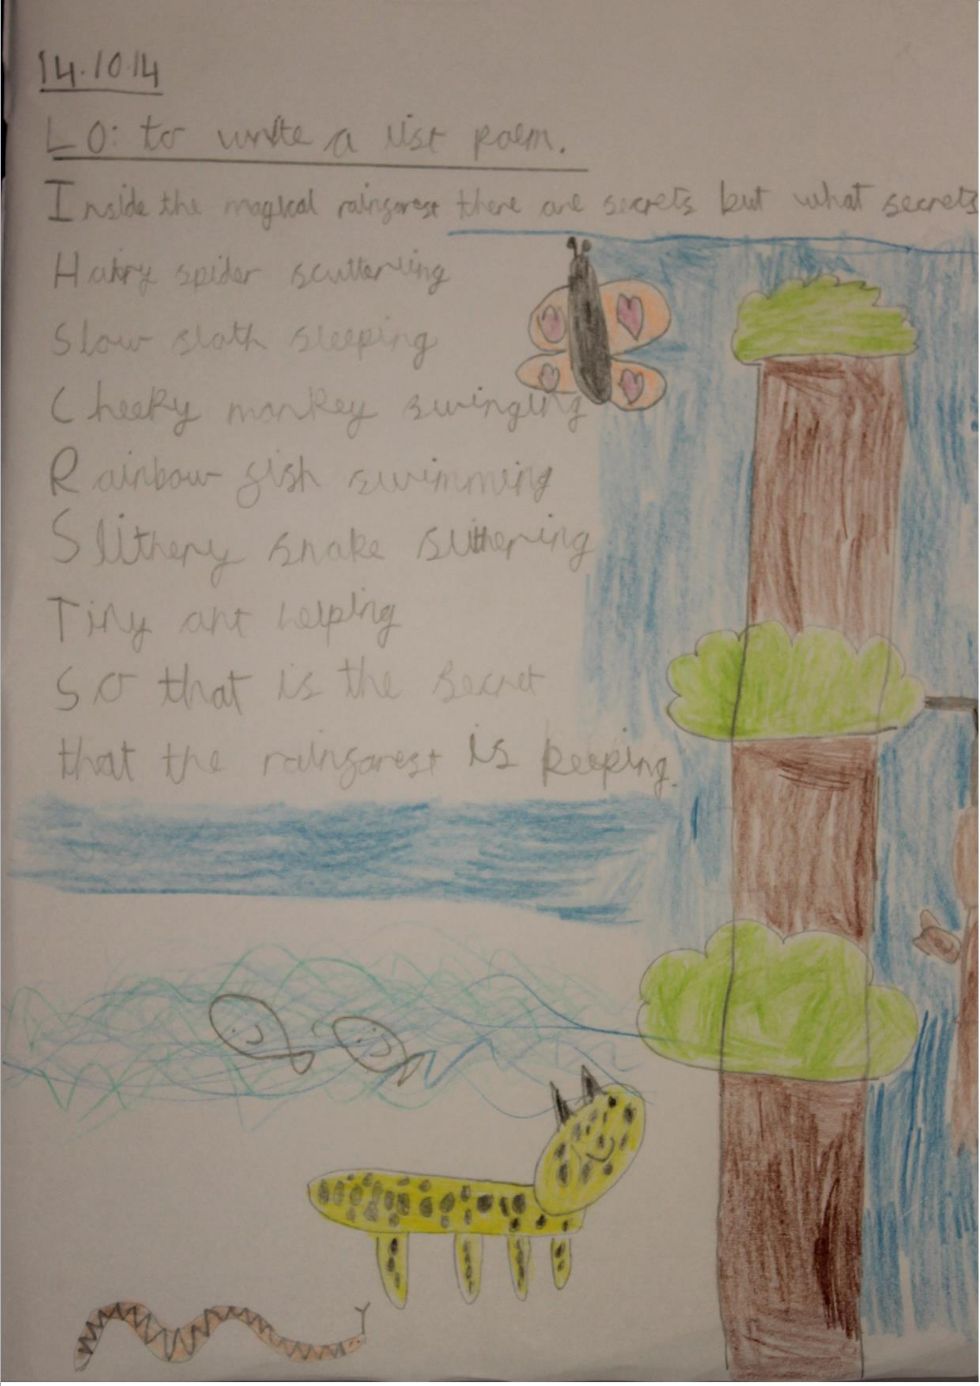 14.10.14
LO: to write a list poem.
Inside the magical rainforest there are secrets but what secrets
Hairy spider scuttering
Slow sloth sleeping
Cheeky monkey swinging
Rainbow fish swimming
Slithery snake slithering
Tiny ant helping
So that is the secret
that the rainforest is keeping.